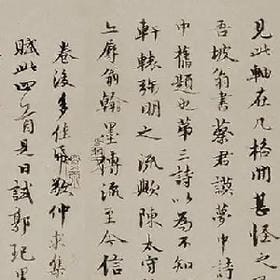 見此軸在几格間甚怪之
吾坡翁書蔡君謨夢中詩
中舊題也第三詩以為不知
軒轅弥明之流歟陳太守
上辱翁翰墨轉流至今信
卷後多佳
仲
集
賦此四首見日試郭玘